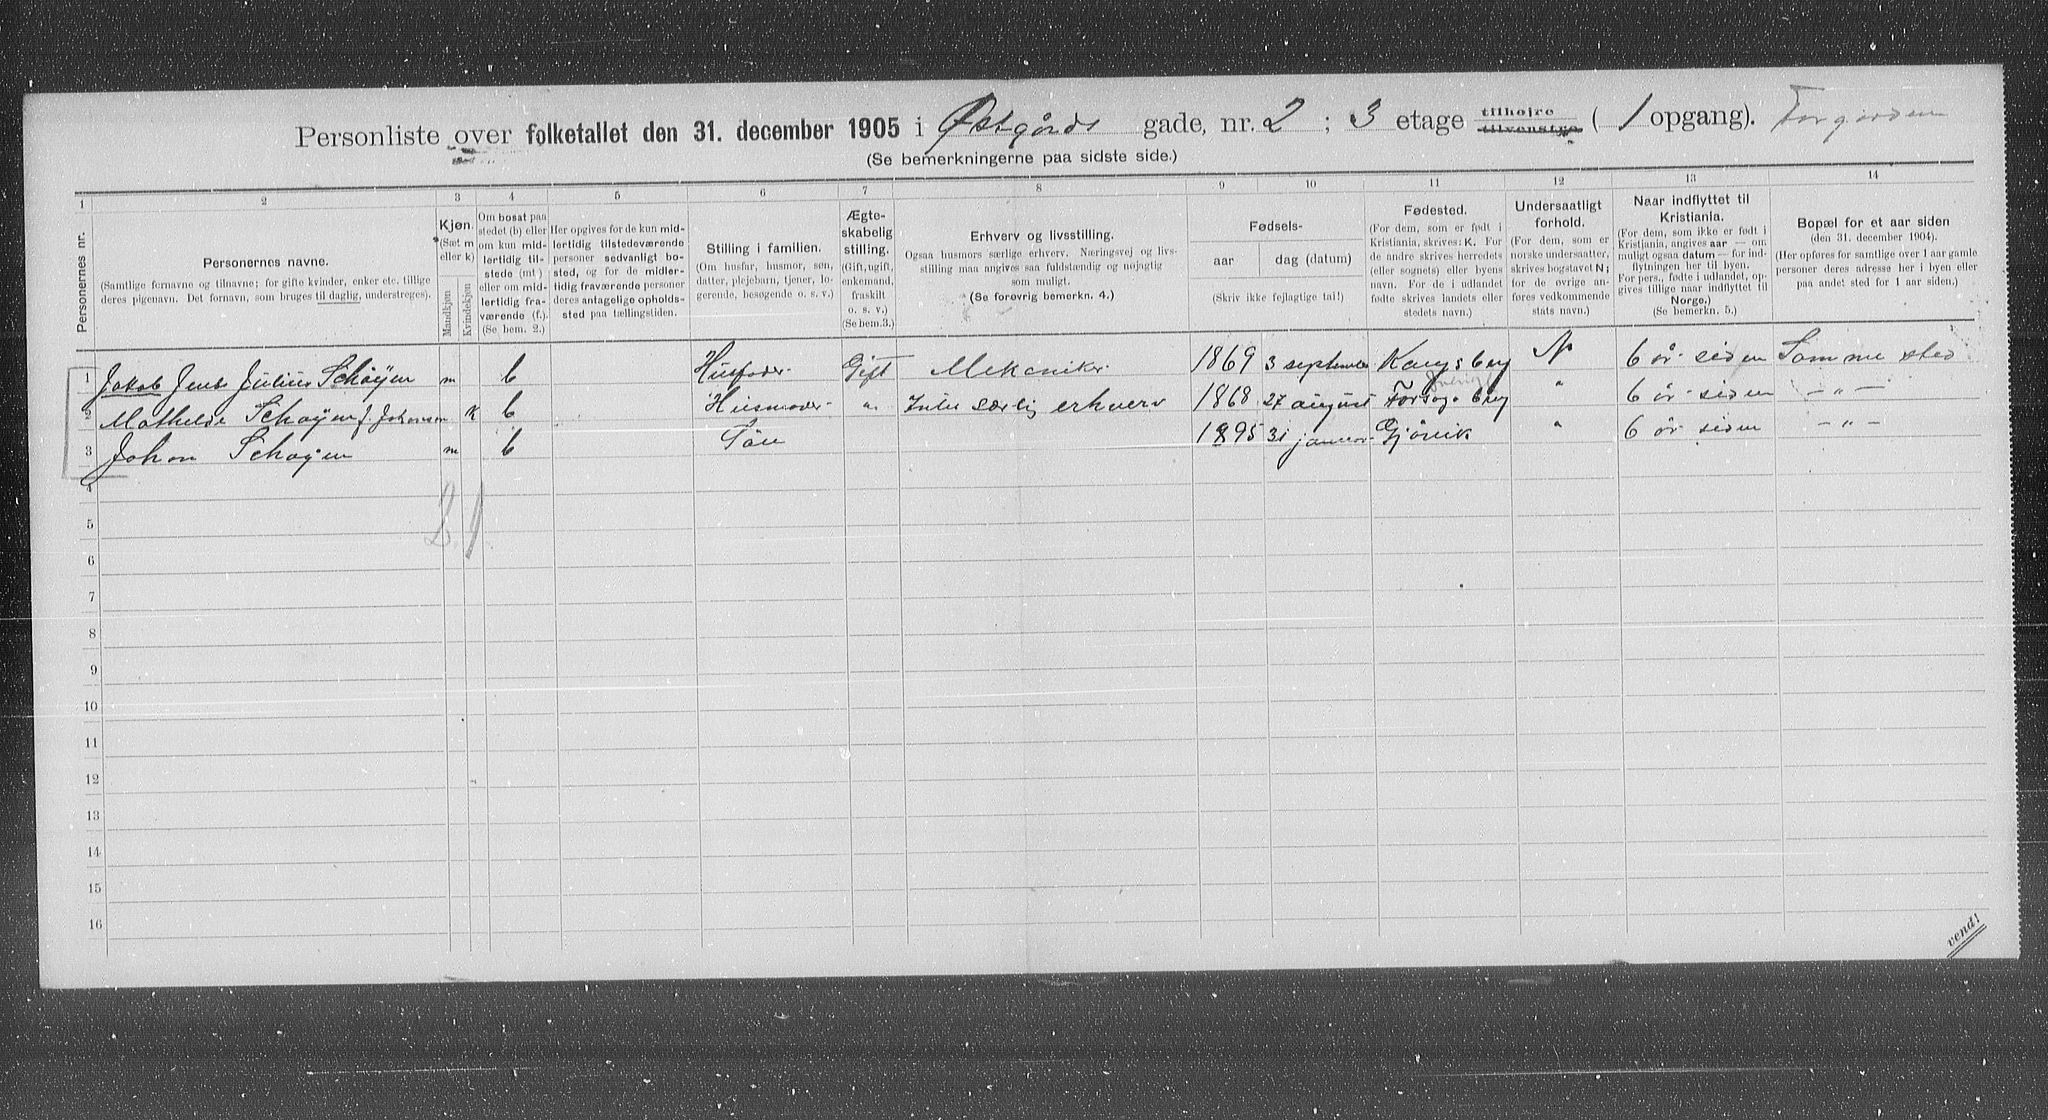 Personliste over folketallet den 31. december 1905 i Østgårds gade, nr. 2 ; 3 etage tilhøjre tilvenstre ( 1 opgang). Forgården
(Se bemerkningerne paa sidste side.)
1 2 3 4 5 6 7 8 9 10 11 12 13 14
Personernes nr.
Personernes navne.
(Samtlige fornavne og tilnavne; for gifte kvinder, enker etc. tillige
deres pigenavn. Det fornavn, som bruges til daglig, understreges).
Kjøn.
(Sæt m
eller k)
Mandkjøn
Kvindekjøn
Om bosat paa
stedet (b) eller
om kun mid-
lertidig til-
stede (mt)
eller om mid-
lertidig fra-
værende (f.).
(Se bem. 2.)
Her opgives for de kun mid-
lertidig tilstedeværende
personer sedvanligt bo-
sted, og for de midler-
tidig fraværende personer
deres antagelige opholds-
sted paa tællingstiden.
Stilling i familien.
(Om husfar, husmor, søn,
datter, plejebarn, tjener, lo-
gerende, besøgende o. s. v.)
Ægte-
skabelig
stilling.
(Gift, ugift,
enkemand,
fraskilt
o. s. v.)
(Se bem.3.)
Erhverv og livsstilling.
Ogsaa husmors særlige erhverv. Næringsvej og livs-
stilling maa angives saa fuldstændig og nøjagtig
som muligt.
(Se forøvrig bemerkn. 4.)
Fødsels-
aar
dag (datum)
(Skriv ikke fejlagtige tal!)
Fødested.
(For dem, som er født i
Kristiania, skrives: K. For
de andre skrives herredets
(eller sognets) eller byens
navn. For de i udlandet
fødte skrives landets eller
stedets navn.)
Undersaatligt
forhold.
(For dem, som er
norske undersaatter,
skrives bogstavet N;
for de øvrige an-
føres vedkommende
stats navn.)
Naar indflyttet til
Kristiania.
(For dem, som ikke er født i
Kristiania, angives aar — om
muligt ogsaa datum — for ind-
flytningen her til byen.
For pers., fødte i udlandet, op-
gives tillige naar indflyttet til
Norge.)
(Se bemerkn. 5.)
Bopæl for et aar siden
(den 31. december 1904).
(Her opføres for samtlige over 1 aar gamle
personer deres adresse her i byen eller
paa andet sted for 1 aar siden.)
1 Jakob Jens Julius Schøyen m b Husfader Gift Mekaniker 1869 3 september Kongsberg N 6 år siden Samme sted
2 Mathilde Schøyen f. Johansen K b Husmoder " Intet særlig erhverv 1868 27 august " 6 år siden — " —
3 Johan Schøyen m b Søn 1895 31 januar Gjøvik " 6 år siden — " —
4
5
2. 1.
6
7
8
9
10
11
12
13
14
15
16
vend!